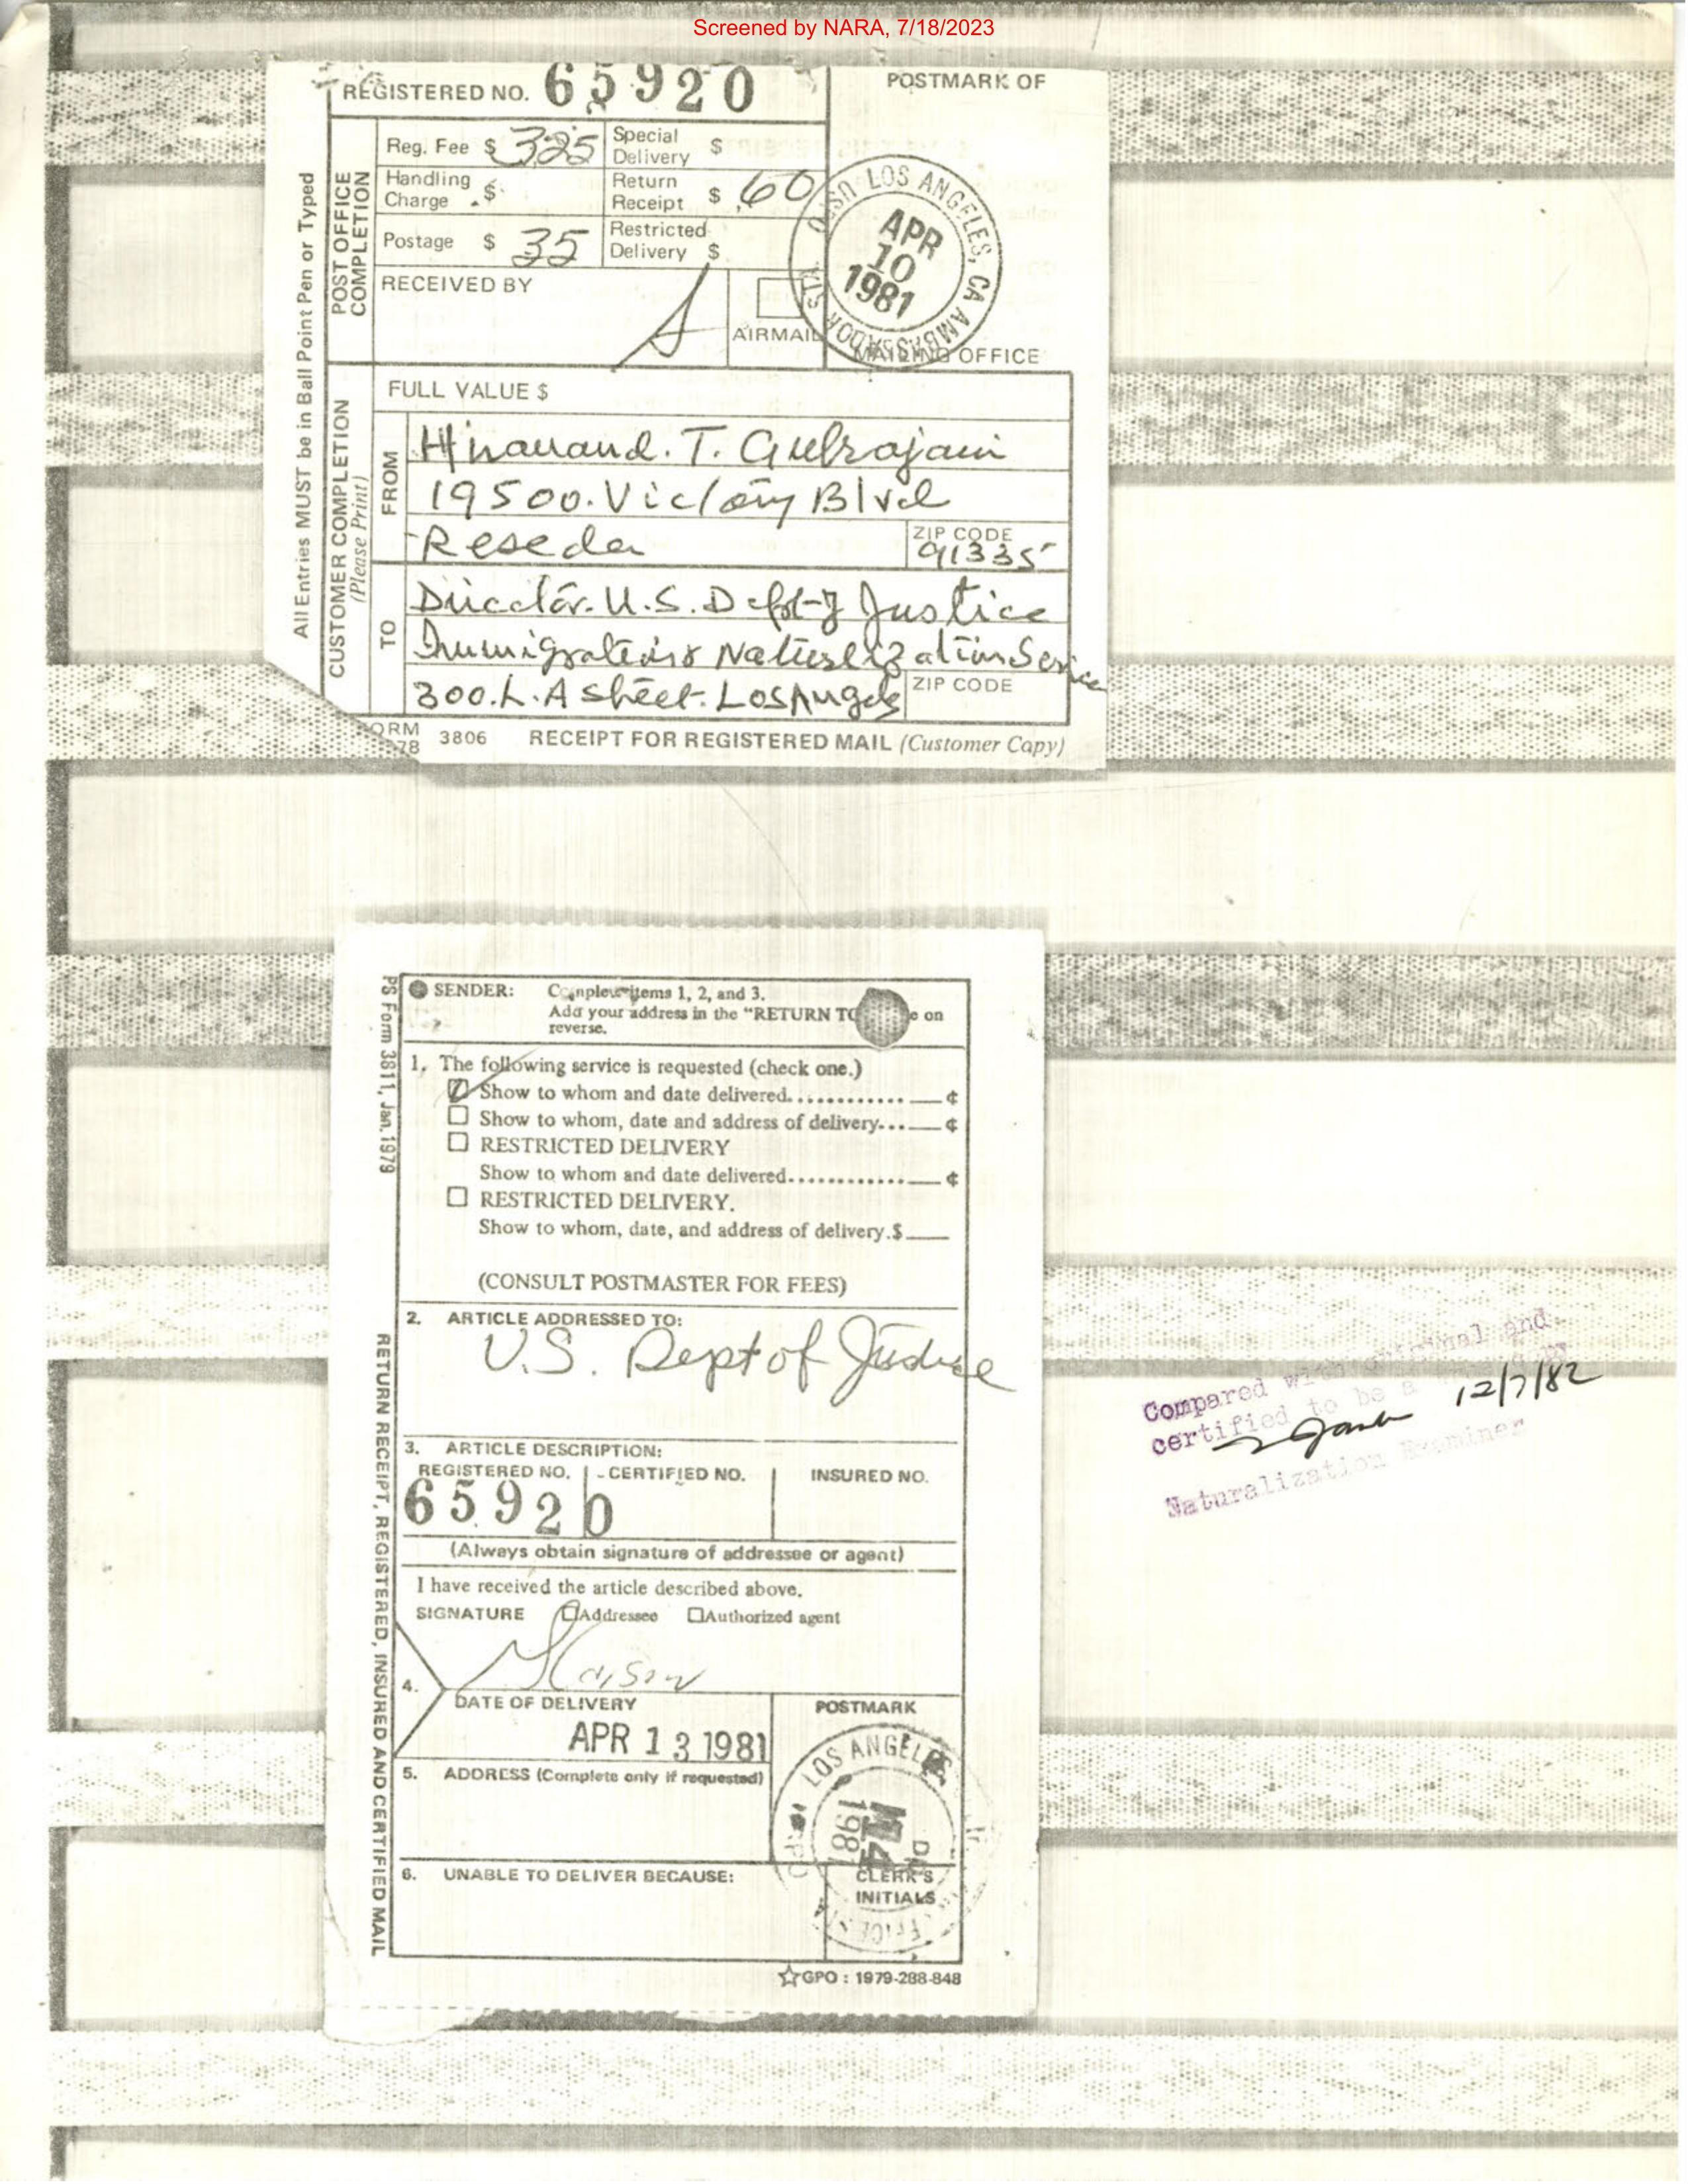 Screened by NARA, 7/18/2023
REGISTERED NO. 65920
POSTMARK OF
All Entries MUST be in Ball Point Pen or Typed
POST OFFICE COMPLETION
Reg. Fee $ 325
Special Delivery $
Handling Charge $
Return Receipt $ .60
Postage $ 35
Restricted Delivery $
RECEIVED BY
AIRMAIL
LOS ANGELES, CA AMBASSADOR STA
USPO
APR
10
1981
MAILING OFFICE
CUSTOMER COMPLETION
(Please Print)
FULL VALUE $
FROM
T.
19500. Victory Blvd
Reseda
ZIP CODE
91335
TO
Director. U.S. Dept of Justice
Immigration & Naturalization Service
300. L.A Street. Los Angeles
ZIP CODE
3806 RECEIPT FOR REGISTERED MAIL (Customer Copy)
PS Form 3811, Jan. 1979
RETURN RECEIPT, REGISTERED, INSURED AND CERTIFIED MAIL
SENDER: Complete items 1, 2, and 3.
Add your address in the "RETURN TO on
reverse.
1. The following service is requested (check one.)
Show to whom and date delivered............ ¢
Show to whom, date and address of delivery... ¢
RESTRICTED DELIVERY
Show to whom and date delivered............ ¢
RESTRICTED DELIVERY.
Show to whom, date, and address of delivery.$
(CONSULT POSTMASTER FOR FEES)
2. ARTICLE ADDRESSED TO:
U.S. Dept of Justice
3. ARTICLE DESCRIPTION:
REGISTERED NO. CERTIFIED NO. INSURED NO.
65920
(Always obtain signature of addressee or agent)
I have received the article described above.
SIGNATURE Addressee Authorized agent
4.
DATE OF DELIVERY
APR 13 1981
POSTMARK
LOS ANGELES
5. ADDRESS (Complete only if requested)
6. UNABLE TO DELIVER BECAUSE:
CLERK'S
INITIALS
☆GPO : 1979-288-848
Compared with original and
certified to be a
12/7/82
Naturalization Examiner